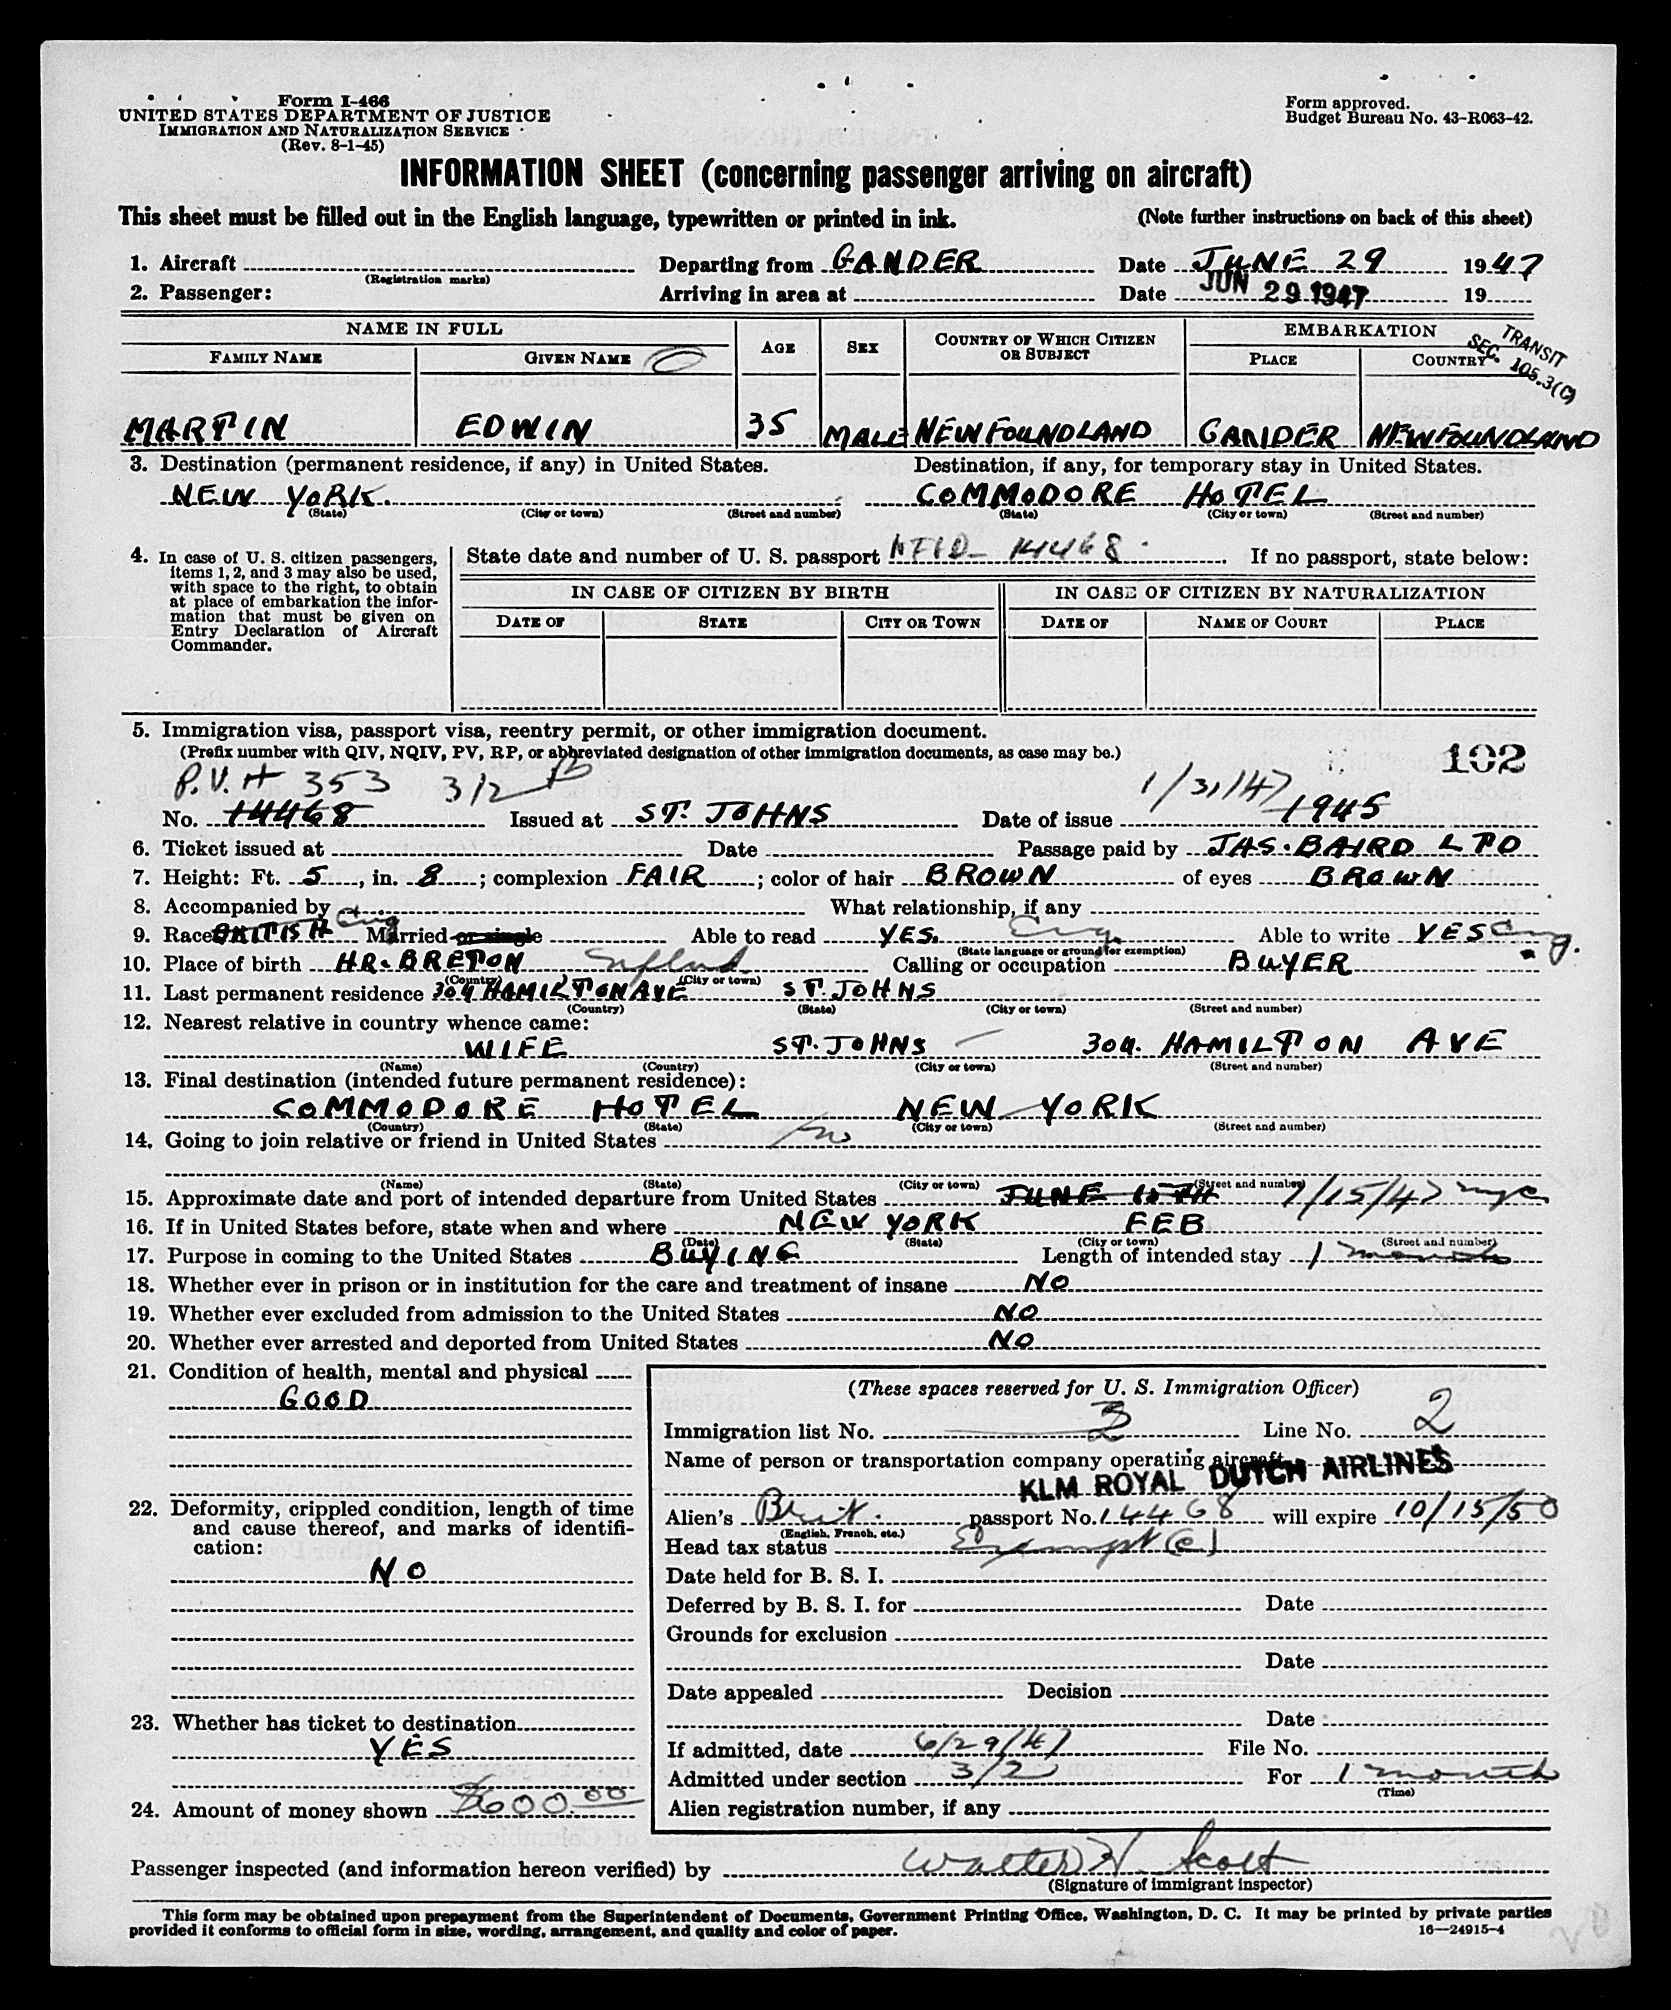 Form I-466
UNITED STATES DEPARTMENT OF JUSTICE
IMMIGRATION AND NATURALIZATION SERVICE
(Rev. 8-1-45)
Form approved.
Budget Bureau No. 43-R063-42.
INFORMATION SHEET (concerning passenger arriving on aircraft)
This sheet must be filled out in the English language, typewritten or printed in ink. (Note further instructions on back of this sheet)
1. Aircraft Departing from GANDER Date JUNE 29 1947
(Registration marks)
2. Passenger: Arriving in area at Date JUN 29 1947 19
NAME IN FULL EMBARKATION
FAMILY NAME GIVEN NAME AGE SEX COUNTRY OF WHICH CITIZEN OR SUBJECT PLACE COUNTRY
TRANSIT
SEC. 105.3(C)
MARTIN EDWIN 35 MALE NEWFOUNDLAND GANDER NEWFOUNDLAND
3. Destination (permanent residence, if any) in United States. Destination, if any, for temporary stay in United States.
NEW YORK. COMMODORE HOTEL
(State) (City or town) (Street and number) (State) (City or town) (Street and number)
4. In case of U. S. citizen passengers, items 1, 2, and 3 may also be used, with space to the right, to obtain at place of embarkation the information that must be given on Entry Declaration of Aircraft Commander.
State date and number of U. S. passport NFLD- 14468. If no passport, state below:
IN CASE OF CITIZEN BY BIRTH IN CASE OF CITIZEN BY NATURALIZATION
DATE OF STATE CITY OR TOWN DATE OF NAME OF COURT PLACE
5. Immigration visa, passport visa, reentry permit, or other immigration document.
(Prefix number with QIV, NQIV, PV, RP, or abbreviated designation of other immigration documents, as case may be.)
102
P.V. # 353 3/2 1/31/47
No. 14468 Issued at ST. JOHNS Date of issue 1945
6. Ticket issued at Date Passage paid by JAS. BAIRD LTD
7. Height: Ft. 5, in. 8; complexion FAIR; color of hair BROWN of eyes BROWN
8. Accompanied by What relationship, if any
9. Race BRITISH Eng Married or single Able to read YES. Eng. Able to write YES Eng.
(State language or ground for exemption)
10. Place of birth HR. BRETON Nfland Calling or occupation BUYER
(Country) (City or town)
11. Last permanent residence 304 HAMILTON AVE ST. JOHNS
(Country) (State) (City or town) (Street and number)
12. Nearest relative in country whence came:
WIFE ST. JOHNS 304. HAMILTON AVE
(Name) (Country) (City or town) (Street and number)
13. Final destination (intended future permanent residence):
COMMODORE HOTEL NEW YORK
(Country) (State) (City or town) (Street and number)
14. Going to join relative or friend in United States no
(Name) (State) (City or town) (Street and number)
15. Approximate date and port of intended departure from United States JUNE 15TH 7/15/47 nyc
16. If in United States before, state when and where NEW YORK FEB
(Date) (State) (City or town) (Street and number)
17. Purpose in coming to the United States BUYING Length of intended stay 1 month
18. Whether ever in prison or in institution for the care and treatment of insane NO
19. Whether ever excluded from admission to the United States NO
20. Whether ever arrested and deported from United States NO
21. Condition of health, mental and physical
GOOD
22. Deformity, crippled condition, length of time and cause thereof, and marks of identification:
NO
23. Whether has ticket to destination
YES
24. Amount of money shown $600.00
(These spaces reserved for U. S. Immigration Officer)
Immigration list No. 3 Line No. 2
Name of person or transportation company operating aircraft
KLM ROYAL DUTCH AIRLINES
Alien's Brit. passport No. 14468 will expire 10/15/50
(English, French, etc.)
Head tax status Exempt (e)
Date held for B. S. I.
Deferred by B. S. I. for Date
Grounds for exclusion
Date
Date appealed Decision
Date
If admitted, date 6/29/47 File No.
Admitted under section 3/2 For 1 month
(Time)
Alien registration number, if any
Passenger inspected (and information hereon verified) by Walter H. Scott
(Signature of immigrant inspector)
This form may be obtained upon prepayment from the Superintendent of Documents, Government Printing Office, Washington, D. C. It may be printed by private parties
provided it conforms to official form in size, wording, arrangement, and quality and color of paper. 16—24915-4